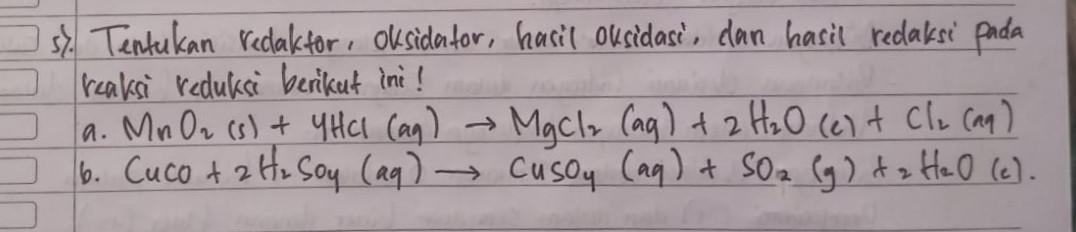 5). Tentukan redaktor, oksidator, hasil oksidasi, dan hasil redaksi pada
reaksi reduksi berikut ini!
a. MnO₂ (s) + 4HCl (aq) → MgCl₂ (aq) + 2 H₂O (l) + Cl₂ (aq)
b. CuCO + 2 H₂SO4 (aq) → CuSO4 (aq) + SO₂ (g) + 2 H₂O (l).